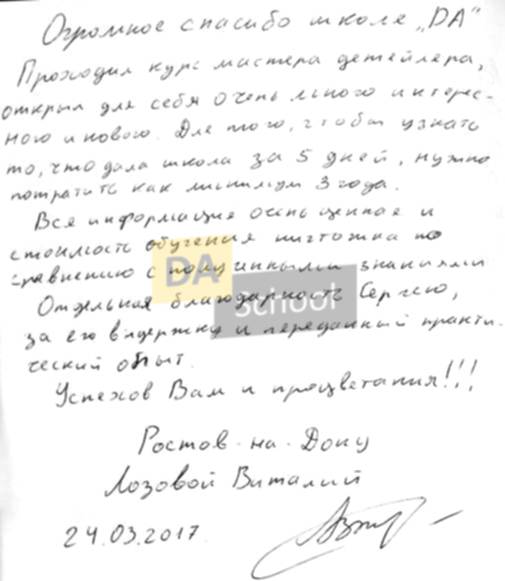 Огромное спасибо школе „DA"
Проходил курс мастера детейлера,
открыл для себя очень много интерес-
ного и нового. Для того, чтобы узнать
то, что дала школа за 5 дней, нужно
потратить как минимум 3 года.
Вся информация очень ценная и
стоимость обучения ничтожна по
сравнению с полученными знаниями
DA
School
Отдельная благодарность Сергею,
за его выдержку и переданный практи-
ческий опыт.
Успехов Вам и процветания!!!
Ростов-на-Дону
Лозовой Виталий
24.03.2017